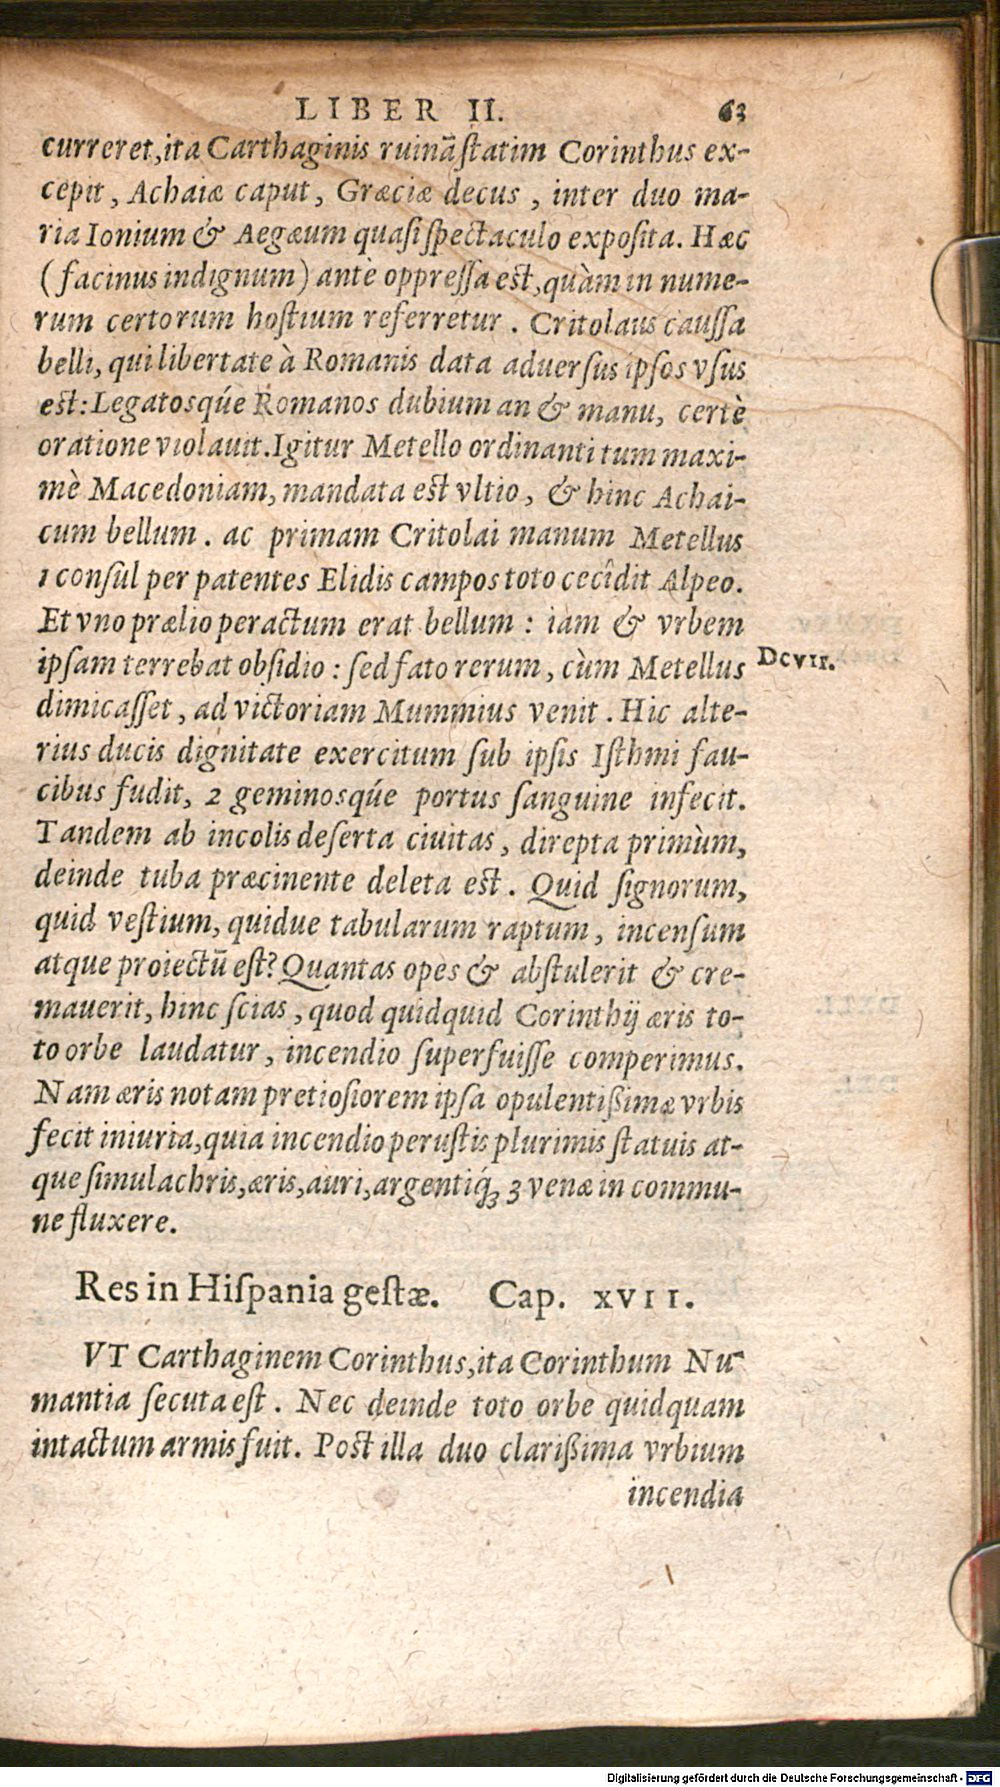 LIBER II. 63
curreret, ita Carthaginis ruinã ſtatim Corinthus ex-
cepit, Achaiæ caput, Græciæ decus, inter duo ma-
ria Ionium & Aegæum quaſi ſpectaculo expoſita. Hæc
(facinus indignum) antè oppreſſa eſt, quàm in nume-
rum certorum hoſtium referretur. Critolaus cauſſa
belli, qui libertate à Romanis data aduerſus ipſos vſus
eſt: Legatosqúe Romanos dubium an & manu, certè
oratione violauit. Igitur Metello ordinanti tum maxi-
mè Macedoniam, mandata eſt vltio, & hinc Achai-
cum bellum. ac primam Critolai manum Metellus
1 conſul per patentes Elidis campos toto cecîdit Alpeo.
Et vno prælio peractum erat bellum: iam & vrbem
ipſam terrebat obſidio: ſed fato rerum, cùm Metellus
Dcvii.
dimicaſſet, ad victoriam Mummius venit. Hic alte-
rius ducis dignitate exercitum ſub ipſis Iſthmi fau-
cibus fudit, 2 geminosqúe portus ſanguine infecit.
Tandem ab incolis deſerta ciuitas, direpta primùm,
deinde tuba præcinente deleta eſt. Quid ſignorum,
quid veſtium, quidue tabularum raptum, incenſum
atque proiectũ eſt? Quantas opes & abſtulerit & cre-
mauerit, hinc ſcias, quod quidquid Corinthij æris to-
to orbe laudatur, incendio ſuperfuiſſe comperimus.
Nam æris notam pretioſiorem ipſa opulentißimæ vrbis
fecit iniuria, quia incendio peruſtis plurimis ſtatuis at-
que ſimulachris, æris, auri, argentiq́; 3 venæ in commu-
ne fluxere.
Res in Hiſpania geſtæ. Cap. XVII.
VT Carthaginem Corinthus, ita Corinthum Nu-
mantia ſecuta eſt. Nec deinde toto orbe quidquam
intactum armis fuit. Poſt illa duo clarißima vrbium
incendia
Digitalisierung gefördert durch die Deutsche Forschungsgemeinschaft - DFG